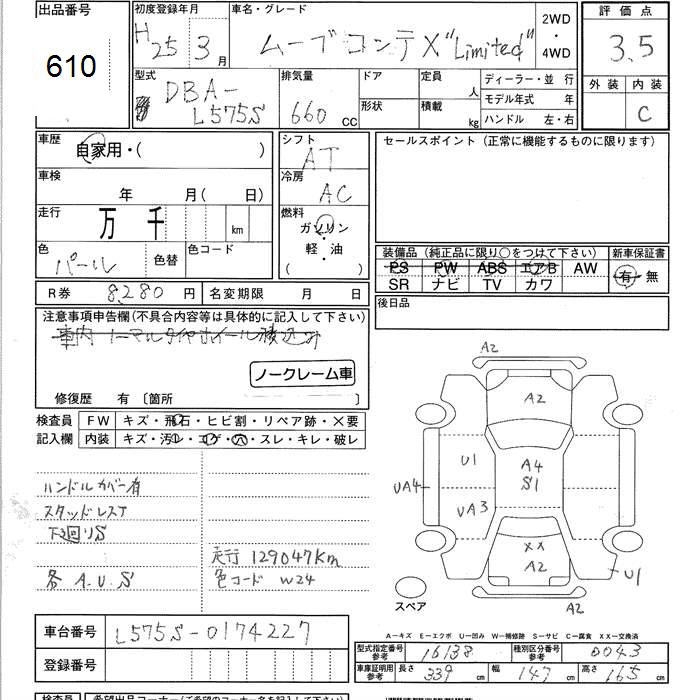 出品番号
610
初度登録年月
H25 3月
車名・グレード
ムーブ コンテ X "Limited"
2WD
・
4WD
評価点
3.5
外装 内装
C
型式
DBA-
L575S
排気量
660 cc
ドア
形状
定員 人
積載 kg
ディーラー・並 行
モデル年式 年
ハンドル 左・右
車歴
自家用・( )
車検
年 月( 日)
走行
万 千 km
色
パール
色替
色コード
シフト
AT
冷房
AC
燃料
ガソリン
・
軽・油
( )
セールスポイント (正常に機能するものに限ります)
装備品 (純正品に限り○をつけて下さい)
PS PW ABS エアB AW
SR ナビ TV カワ
新車保証書
有・無
後日品
R券 8,280 円
名変期限 月 日
注意事項申告欄(不具合内容等は具体的に記入して下さい)
車内 ノーマルタイヤホイール積込み
ノークレーム車
修復歴 有 〔箇所 〕
検査員
記入欄
FW キズ・飛石・ヒビ割・リペア跡・×要
内装 キズ・汚・コゲ・穴・スレ・キレ・破レ
ハンドルカバー有
スタッドレスT
下廻りS
各 A.U.S
走行 129047km
色コード W24
A2
A2
U1
A4
S1
UA4
UA3
××
A2
U1
A2
スペア
A―キズ E―エクボ U―凹み W―補修跡 S―サビ C―腐食 XX―交換済
車台番号
L575S-0174227
登録番号
型式指定番号
参考
16138
種別区分番号
参考
0043
車庫証明用
参考
長さ 339 cm
幅 147 cm
高さ 165 cm
検査員
希望出品コーナー(ご希望のコーナー名を記入して下さい)